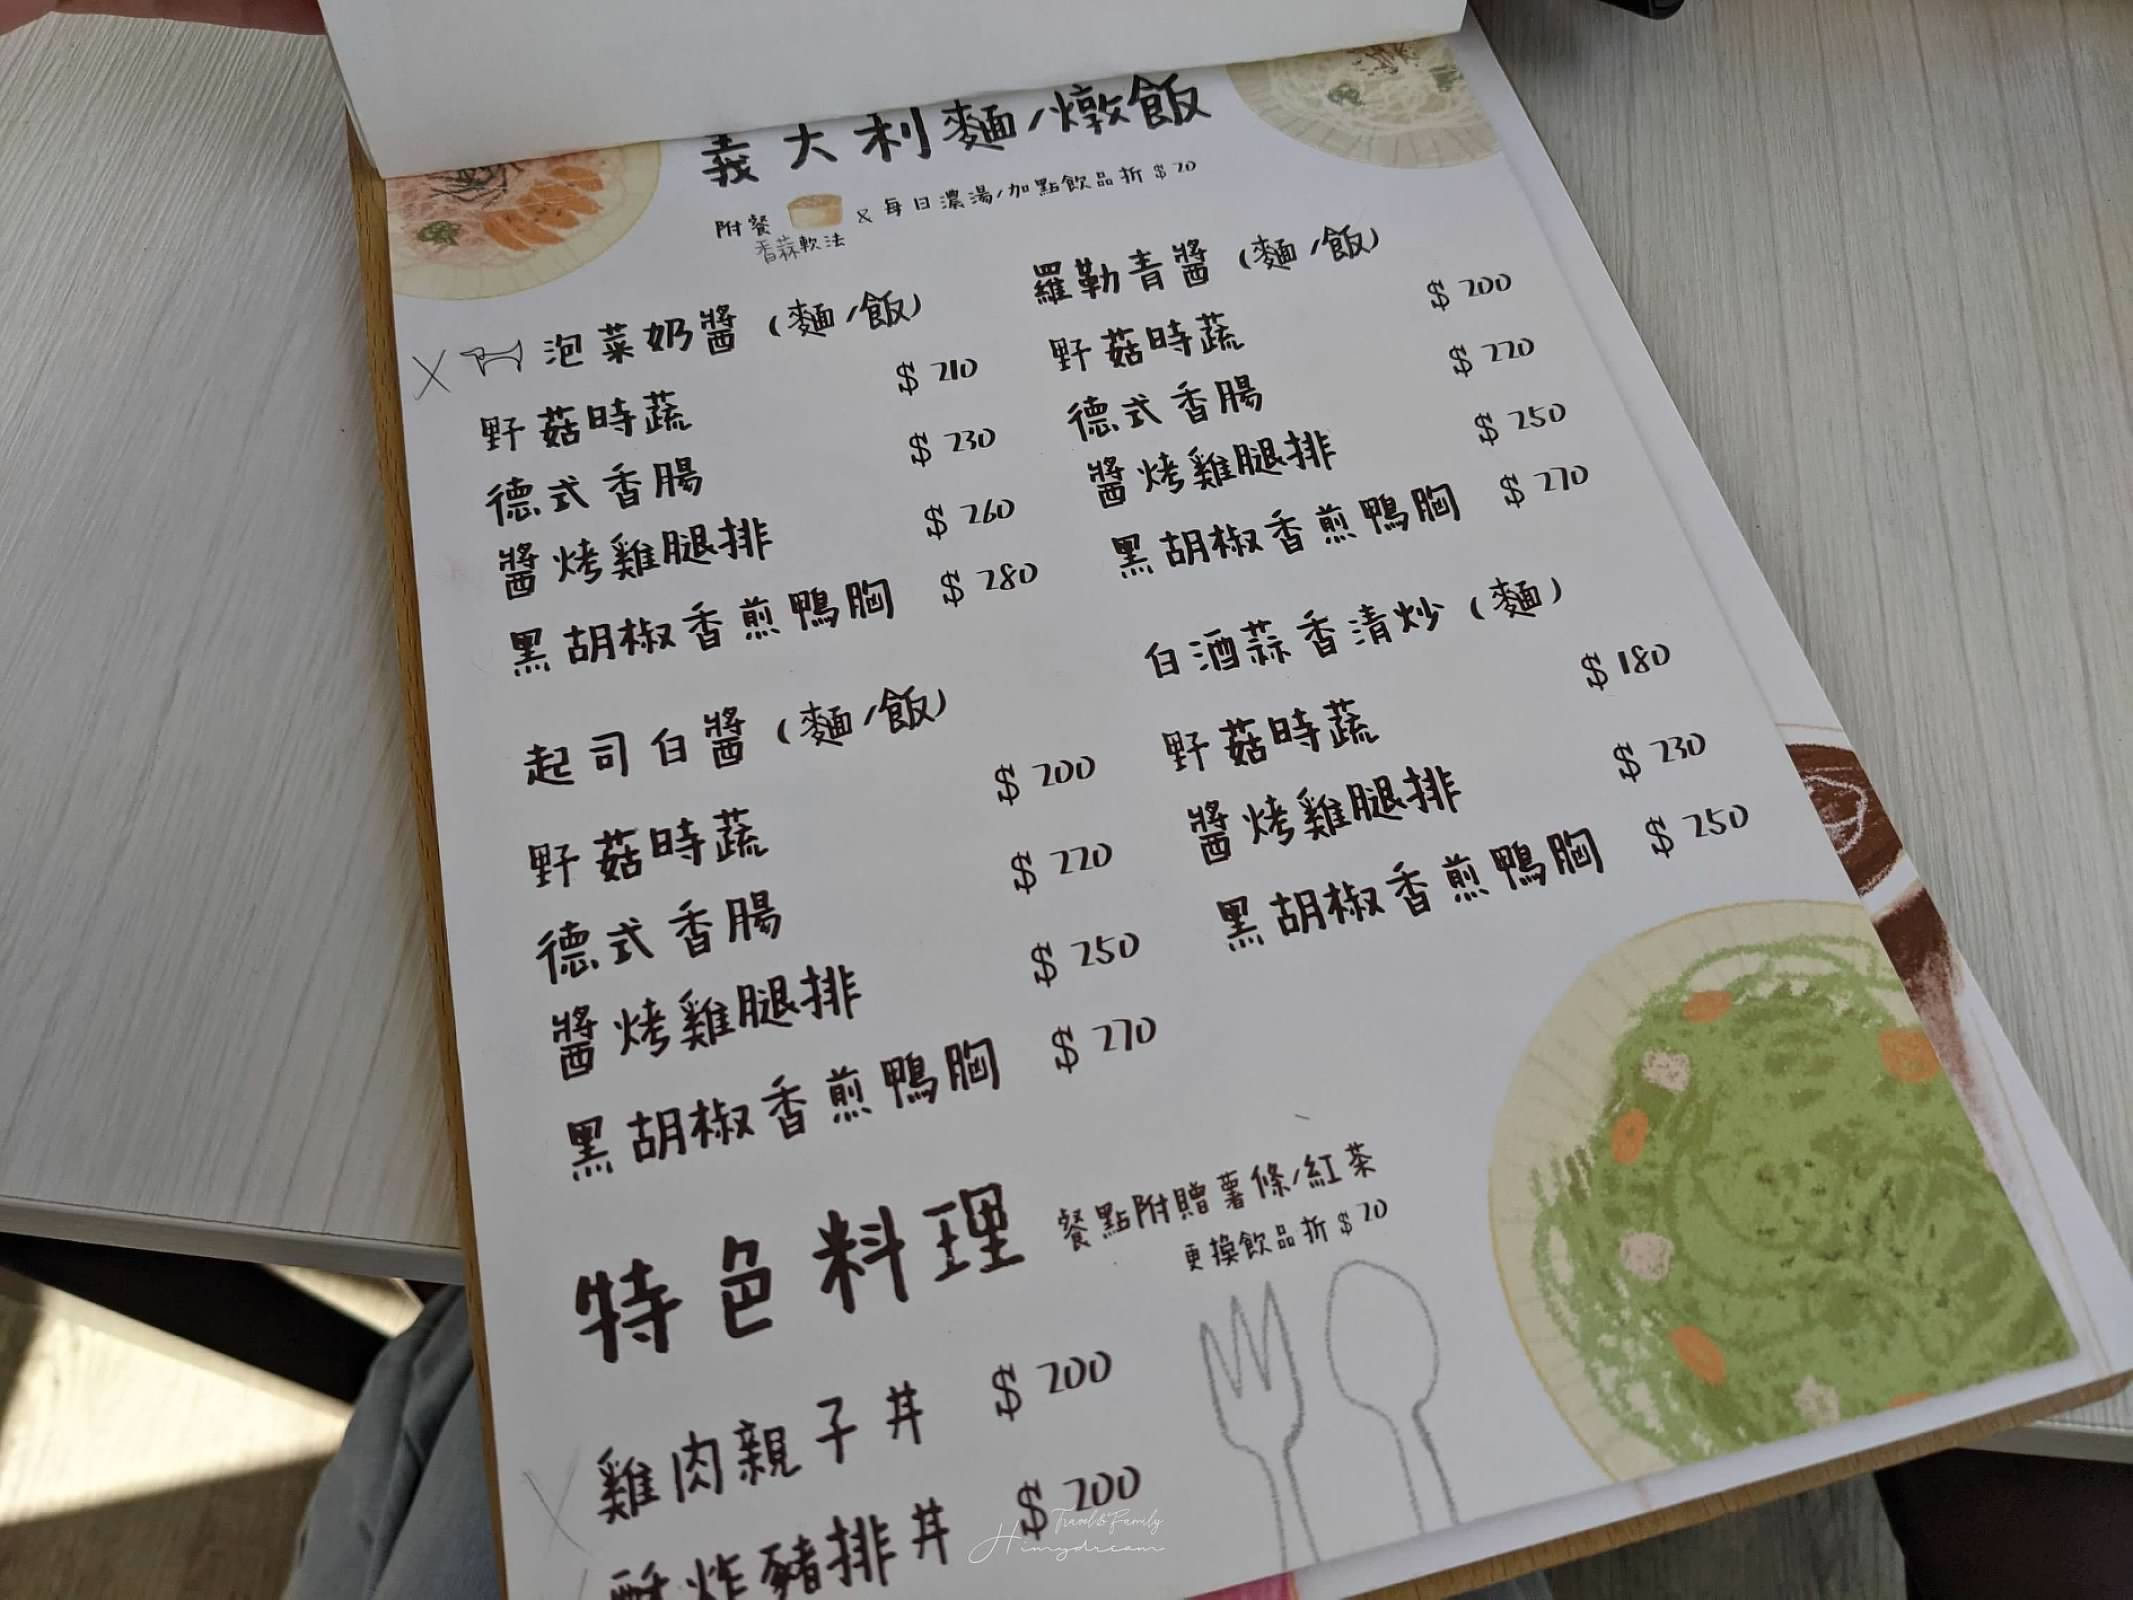 義大利麵/燉飯
附餐 & 每日濃湯/加點飲品折$20
香蒜軟法
泡菜奶醬(麵/飯)
野菇時蔬 $210
德式香腸 $230
醬烤雞腿排 $260
黑胡椒香煎鴨胸 $280
起司白醬(麵/飯)
野菇時蔬 $200
德式香腸 $220
醬烤雞腿排 $250
黑胡椒香煎鴨胸 $270
羅勒青醬(麵/飯)
野菇時蔬 $200
德式香腸 $220
醬烤雞腿排 $250
黑胡椒香煎鴨胸 $270
白酒蒜香清炒(麵)
野菇時蔬 $180
醬烤雞腿排 $230
黑胡椒香煎鴨胸 $250
特色料理
餐點附贈薯條/紅茶
更換飲品折$20
雞肉親子丼 $200
酥炸豬排丼 $200
Travel & Family
Himydream